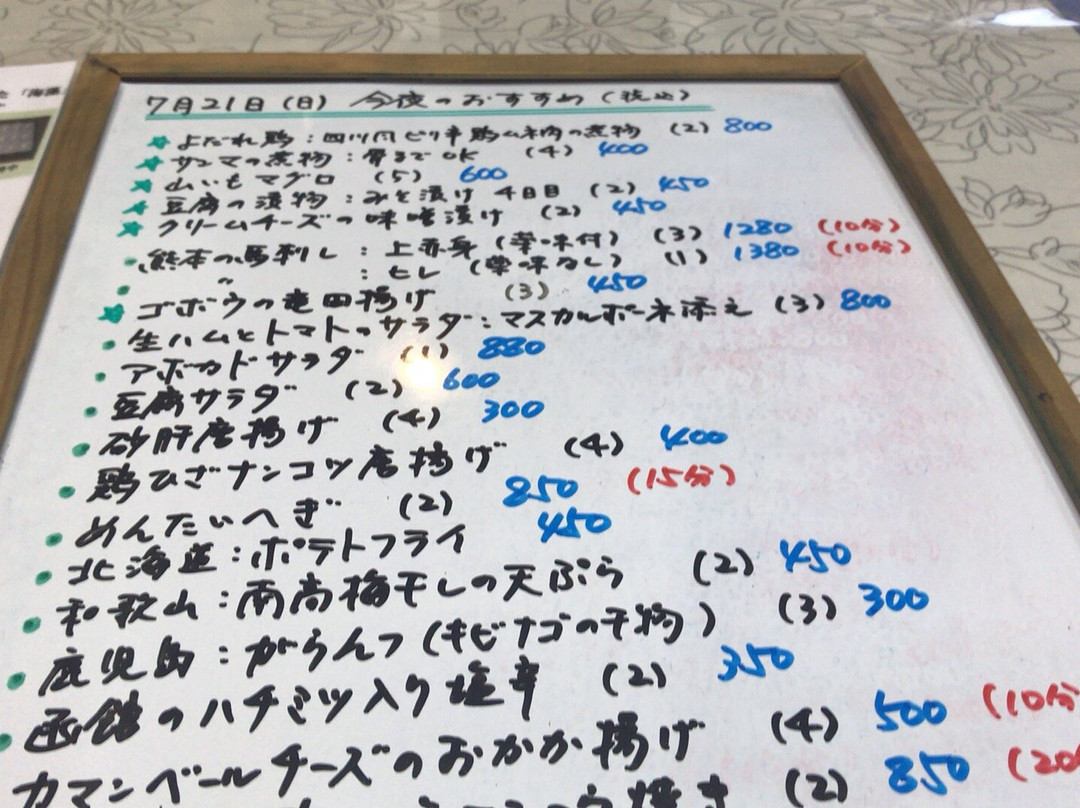 7月21日(日) 今夜のおすすめ(税込)
★よだれ鶏:四川風ピリ辛鶏ムネ肉の煮物 (2) 800
★サンマの煮物:骨までOK (4) 400
★山いもマグロ (5) 600
★豆腐の漬物:みそ漬け 4日目 (2) 450
★クリームチーズの味噌漬け (2) 450
・熊本の馬刺し:上赤身(薬味付) (3) 1280 (10分)
・〃:ヒレ(薬味なし) (1) 1380 (10分)
★ゴボウの竜田揚げ (3) 450
・生ハムとトマトのサラダ:マスカルポーネ添え (3) 800
・アボカドサラダ (1) 880
・豆腐サラダ (2) 600
・砂肝唐揚げ (4) 300
・鶏ひざナンコツ唐揚げ (4) 400
・めんたいへぎ (2) 850 (15分)
・北海道:ポテトフライ 450
・和歌山:南高梅干しの天ぷら (2) 450
・鹿児島:がらんつ(キビナゴの干物) (3) 300
・函館のハチミツ入り塩辛 (2) 350
カマンベールチーズのおかか揚げ (4) 500 (10分
焼き (2) 850 (20